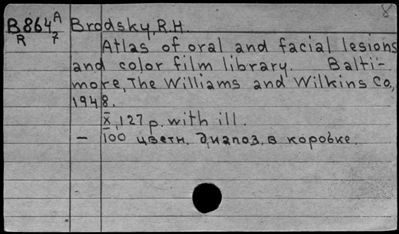 8
B864 A Brodsky, R.H.
R 7 Atlas of oral and facial lesions
and color film library. Balti-
more, The Williams and Wilkins Co.,
1948.
X, 127 p. with ill.
— 100 цветн. диапоз. в коробке.